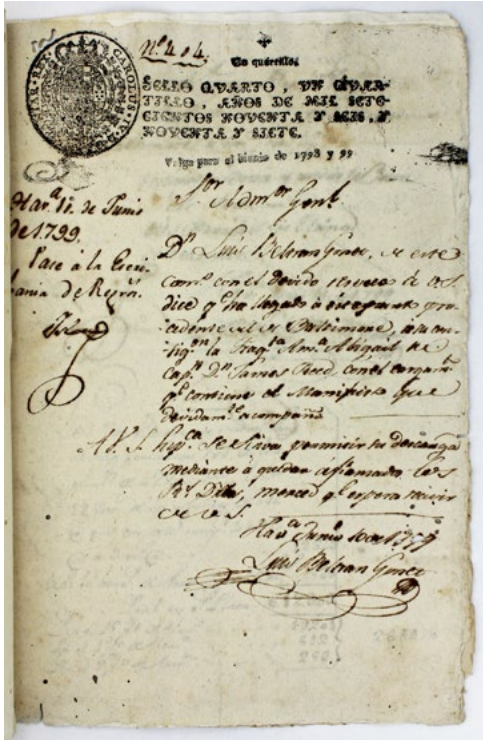 Nº 404.
Un quartillo.
SELLO QVARTO, VN QVAR-
TILLO, AÑOS DE MIL SETE-
CIENTOS NOVENTA Y SEIS, Y
NOVENTA Y SIETE.
Valga para el bienio de 1798 y 99
Sor. Admor. Genl.
Havª 11. de Junio
de 1799.
Pase à la Escri-
bania de Regros.
Dn. Luis Beltran Gonet, de este
comº con el devido respeto à V.S.
dice qe. ha llegado à este puerto pro-
cedente de Baltimore, à su con-
sigon. la Fragta. Amª Abigail su
capn. Dn. James Reed, con el cargamto.
qe. contiene el Manifiesto que
devidamte. acompaña
A V. S. Suppca. se sirva permitir su descarga
mediante à quedar afianzados los
Rs. Dros., merced qe. espera recivir
de V. S.
Havª Junio 10 de 1799
Luis Beltran Gonet